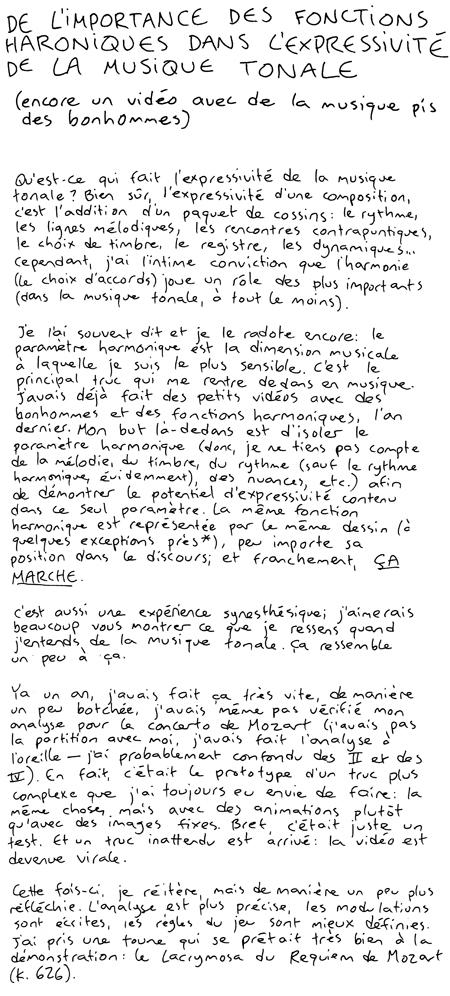 DE L'IMPORTANCE DES FONCTIONS
HARONIQUES DANS L'EXPRESSIVITÉ
DE LA MUSIQUE TONALE
(encore un vidéo avec de la musique pis
des bonhommes)
Qu'est-ce qui fait l'expressivité de la musique
tonale? Bien sûr, l'expressivité d'une composition,
c'est l'addition d'un paquet de cossins: le rythme,
les lignes mélodiques, les rencontres contrapuntiques,
le choix de timbre, le registre, les dynamiques...
cependant, j'ai l'intime conviction que l'harmonie
(le choix d'accords) joue un rôle des plus importants
(dans la musique tonale, à tout le moins).
Je l'ai souvent dit et je le radote encore: le
paramètre harmonique est la dimension musicale
à laquelle je suis le plus sensible. C'est le
principal truc qui me rentre dedans en musique.
J'avais déjà fait des petits vidéos avec des
bonhommes et des fonctions harmoniques, l'an
dernier. Mon but là-dedans est d'isoler le
paramètre harmonique (donc, je ne tiens pas compte
de la mélodie, du timbre, du rythme (sauf le rythme
harmonique, évidemment), des nuances, etc.) afin
de démontrer le potentiel d'expressivité contenu
dans ce seul paramètre. La même fonction
harmonique est représentée par le même dessin (à
quelques exceptions près*), peu importe sa
position dans le discours; et franchement, ÇA
MARCHE.
C'est aussi une expérience synesthésique; j'aimerais
beaucoup vous montrer ce que je ressens quand
j'entends de la musique tonale. Ça ressemble
un peu à ça.
Ya un an, j'avais fait ça très vite, de manière
un peu botchée, j'avais même pas vérifié mon
analyse pour le concerto de Mozart (j'avais pas
la partition avec moi, j'avais fait l'analyse à
l'oreille — j'ai probablement confondu des II et des
IV). En fait, c'était le prototype d'un truc plus
complexe que j'ai toujours eu envie de faire: la
même chose, mais avec des animations plutôt
qu'avec des images fixes. Bref, c'était juste un
test. Et un truc inattendu est arrivé: la vidéo est
devenue virale.
Cette fois-ci, je réitère, mais de manière un peu plus
réfléchie. L'analyse est plus précise, les modulations
sont écrites, les règles du jeu sont mieux définies.
J'ai pris une toune qui se prêtait très bien à la
démonstration: le Lacrymosa du Requiem de Mozart
(K. 626).